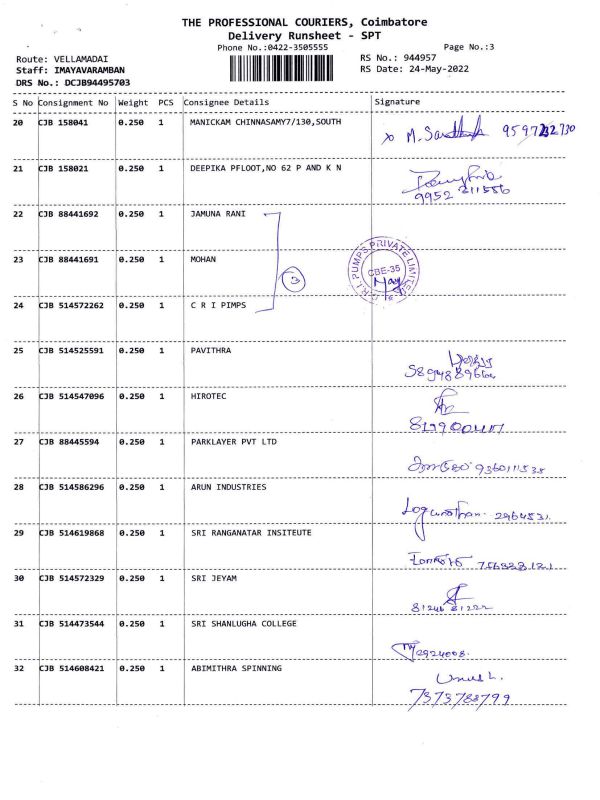 THE PROFESSIONAL COURIERS, Coimbatore
Delivery Runsheet - SPT
Phone No.:0422-3505555 Page No.:3
Route: VELLAMADAI RS No.: 944957
Staff: IMAYAVARAMBAN RS Date: 24-May-2022
DRS No.: DCJB94495703
S No Consignment No Weight PCS Consignee Details Signature
20 CJB 158041 0.250 1 MANICKAM CHINNASAMY7/130,SOUTH
21 CJB 158021 0.250 1 DEEPIKA PFLOOT,NO 62 P AND K N
9952 211556
22 CJB 88441692 0.250 1 JAMUNA RANI
23 CJB 88441691 0.250 1 MOHAN
3
C.R.I. PUMPS PRIVATE LIMITED
CBE-35
24 CJB 514572262 0.250 1 C R I PIMPS
25 CJB 514525591 0.250 1 PAVITHRA
26 CJB 514547096 0.250 1 HIROTEC
27 CJB 88445594 0.250 1 PARKLAYER PVT LTD
28 CJB 514586296 0.250 1 ARUN INDUSTRIES
Logunathan 2964531
29 CJB 514619868 0.250 1 SRI RANGANATAR INSITEUTE
30 CJB 514572329 0.250 1 SRI JEYAM
31 CJB 514473544 0.250 1 SRI SHANLUGHA COLLEGE
32 CJB 514608421 0.250 1 ABIMITHRA SPINNING
7373783799